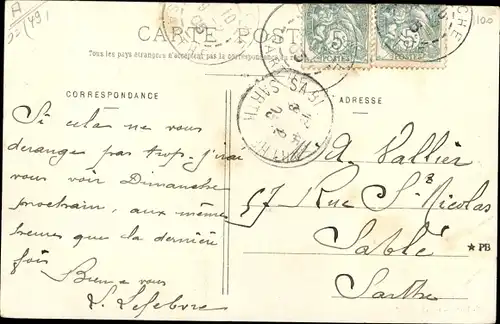 CARTE POST
Tous les pays étrangers n'acceptent pas la correspondance
CORRESPONDANCE
ADRESSE
Si cela ne vous
derange pas trop j'irai
vous voir Dimanche
prochain, aux mêmes
heures que la dernière
fois
Bien à vous
L. Lefebvre
A. Vallier
57 Rue St Nicolas
Sablé
Sarthe
★ PB
5c
POSTES
5c
POSTES
100